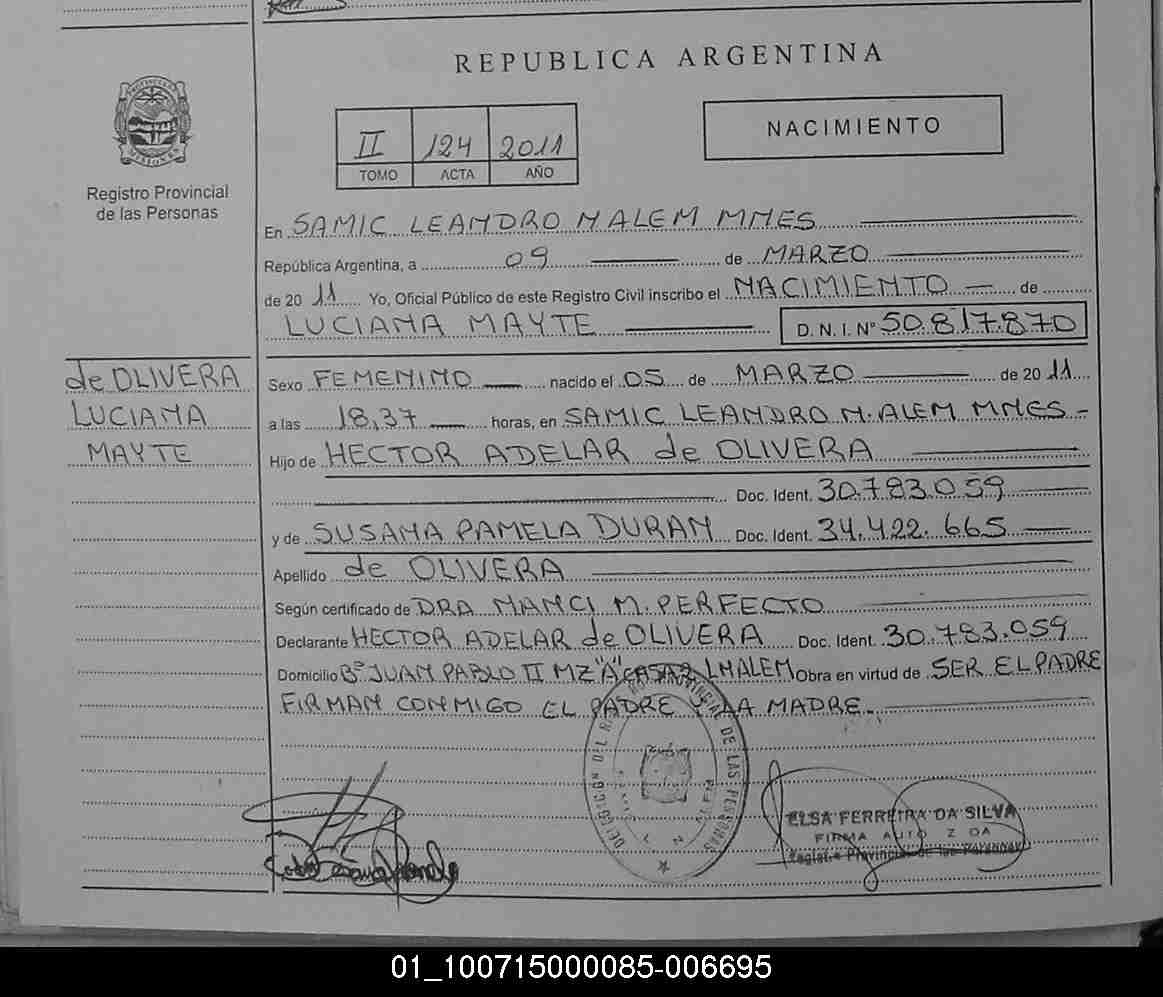 REPUBLICA ARGENTINA
PROVINCIA DE MISIONES
Registro Provincial
de las Personas
II 124 2011
TOMO ACTA AÑO
NACIMIENTO
En SAMIC LEANDRO N ALEM MNES
República Argentina, a 09 de MARZO
de 2011 Yo, Oficial Público de este Registro Civil inscribo el NACIMIENTO de
LUCIANA MAYTE D. N. I. Nº 50.817.870
de OLIVERA
LUCIANA
MAYTE
Sexo FEMENINO nacido el 05 de MARZO de 2011
a las 18,37 horas, en SAMIC LEANDRO N. ALEM MNES
Hijo de HECTOR ADELAR de OLIVERA
Doc. Ident. 30.783.059
y de SUSANA PAMELA DURAN Doc. Ident. 34.422.665
Apellido de OLIVERA
Según certificado de DRA NANCI M. PERFECTO
Declarante HECTOR ADELAR de OLIVERA Doc. Ident. 30.783.059
Domicilio Bº JUAN PABLO II MZ "A" LNALEM Obra en virtud de SER EL PADRE
FIRMAN CONMIGO EL PADRE Y LA MADRE.
DE LAS PERSONAS
ELSA FERREIRA DA SILVA
FIRMA AUTORIZADA
Registro Provincial de las Personas
01_100715000085-006695